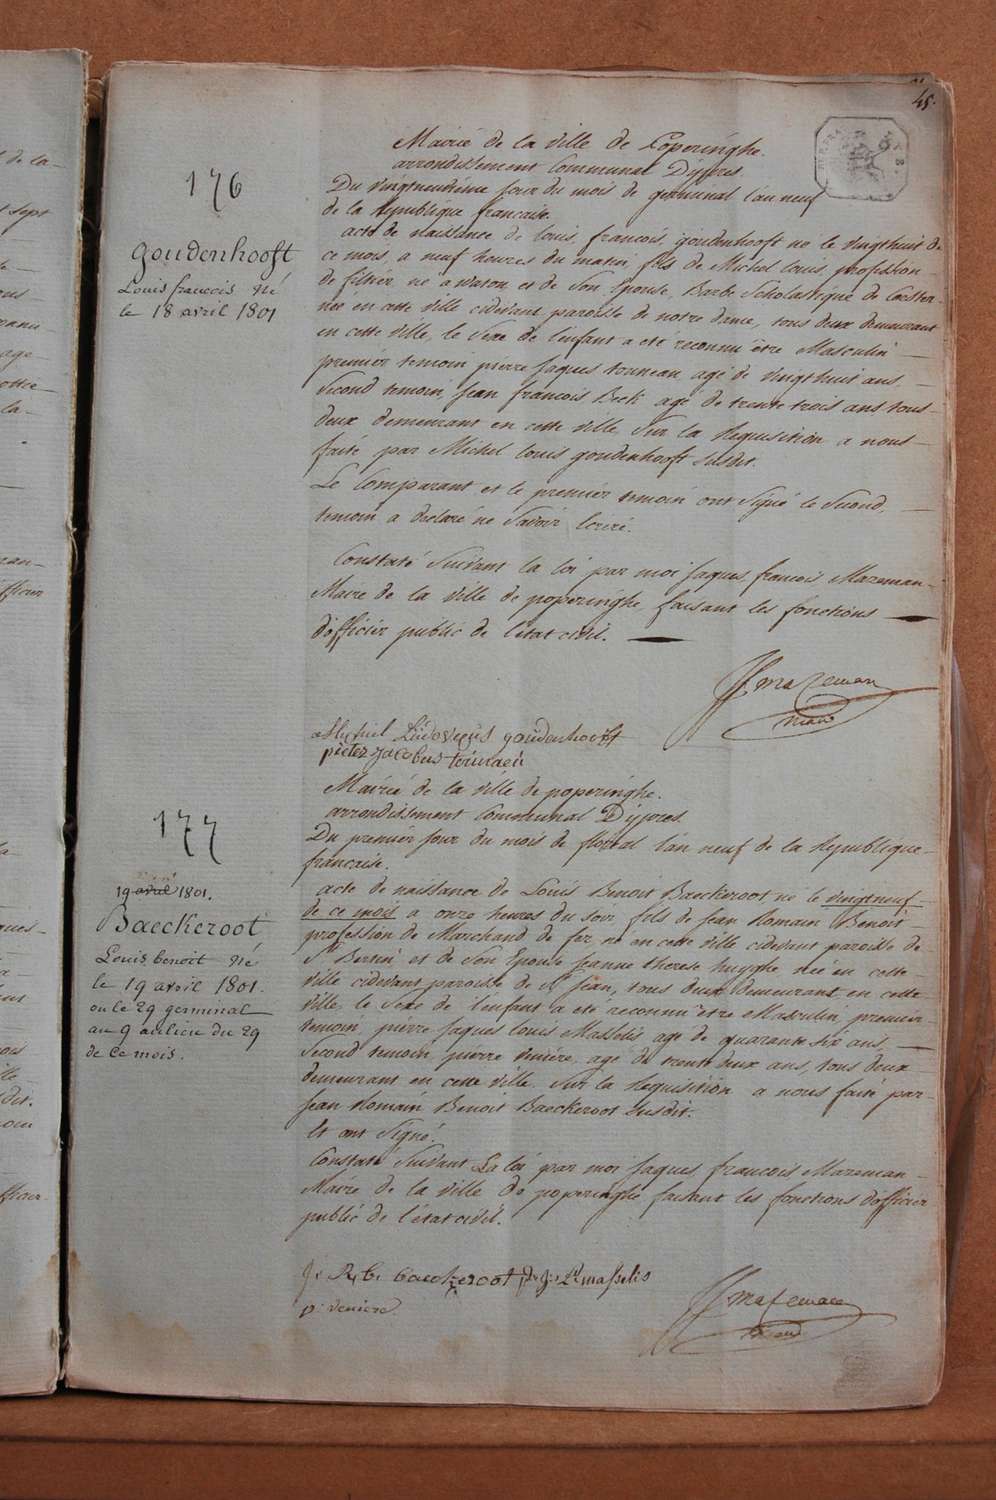 45.
176
goudenhooft
Louis francois Né
le 18 avril 1801
Mairié de la ville de Poperinghe.
arrondissement Communal D'ypres.
Du vingtneuvième jour du mois de germinal l'an neuf
de la République française.
acte de naissance de louis, françois, goudenhooft né le vingthuit de
ce mois, a neuf heures du matin, fils de Michel louis, profession
de filtier, né a watou et de Son Epouse, Barbe Scholastique de
née en cette ville cidevant paroisse de notre dame, tous deux demeurant
en cette ville, le Sexe de l'enfant a été reconnu être Masculin
premier temoin pierre jaques tourneau, agé de vingthuit ans,
Second temoin, jean françois Beck agé de trente trois ans tous
deux demeurant en cette ville. Sur la Requisition a nous
faite par Michel louis goudenhooft susdit.
Le Comparant et le premier temoin ont Signé le Second,
temoin a declaré ne Savoir Ecrire.
Constaté Suivant la loi par moi jaques francois Mazeman
Maire de la ville de poperinghe faisant les fonctions
d'officier public de l'état civil.
JJ mazeman
Michiel Ludovicus goudenhooft
pieter jacobus tournaeu
177
19 avril 1801.
Baeckeroot
Louis, benoit Né
le 19 avril 1801.
ou le 29 germinal
au 9 aulieu du 29
de ce mois.
Mairié de la ville de poperinghe.
arrondissement Communal D'ypres.
Du premier jour du mois de floréal l'an neuf de la République
française.
acte de naissance de Louis Benoit Baeckeroot, né le vingtneuf
de ce mois a onze heures du soir fils de jean Romain Benoit
profession de Marchand de fer, né en cette ville cidevant paroisse de
St Bertin et de Son Epouse jeanne therese huyghe née en cette
ville cidevant paroisse de St jean, tous deux demeurant en cette
ville, le Sexe de l'enfant a été reconnu être Masculin, premier
temoin, pierre jaques louis Masselis agé de quarante six ans,
Second temoin, pierre agé de trente deux ans, tous deux
demeurant en cette ville. Sur la Requisition a nous faite par
jean Romain Benoit Baeckeroot susdit.
Et ont Signé.
Constaté Suivant La loi par moi jaques francois Mazeman
Maire de la ville de poperinghe faisant les fonctions d'officier
public de l'état civil.
J: R: b: baeckeroot p: j: L: masselis
p: veniere
JJ mazeman